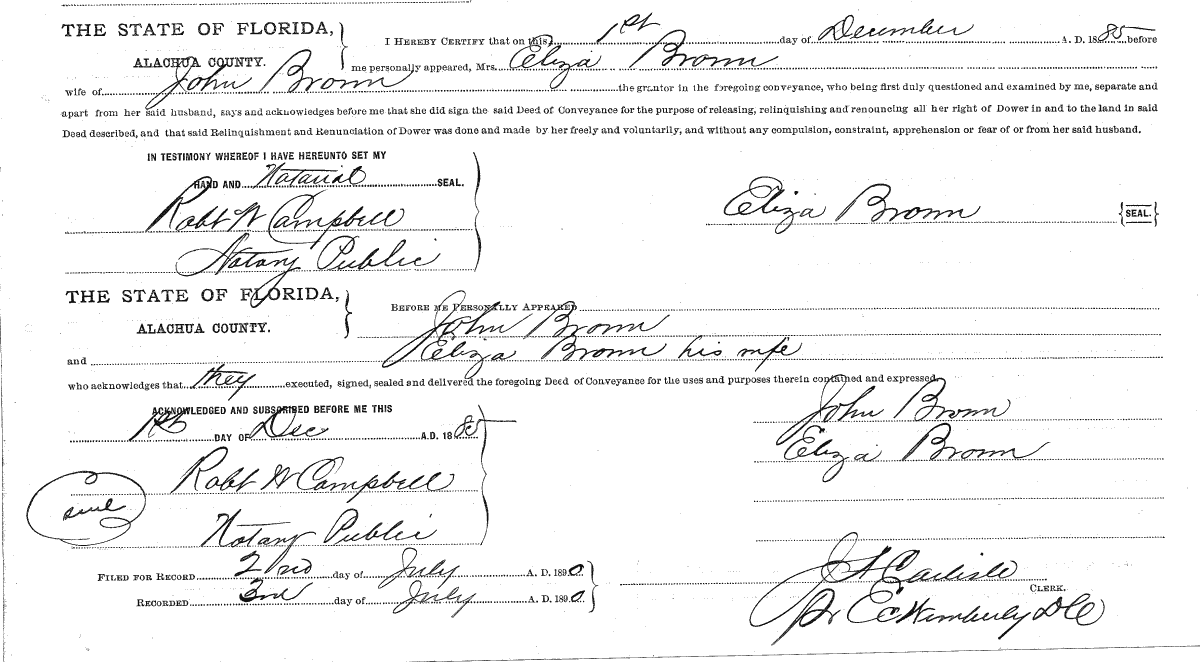 THE STATE OF FLORIDA,
ALACHUA COUNTY.
I HEREBY CERTIFY that on this 1st day of December A. D. 1885 before
me personally appeared, Mrs. Eliza Brown
wife of John Brown the grantor in the foregoing conveyance, who being first duly questioned and examined by me, separate and
apart from her said husband, says and acknowledges before me that she did sign the said Deed of Conveyance for the purpose of releasing, relinquishing and renouncing all her right of Dower in and to the land in said
Deed described, and that said Relinquishment and Renunciation of Dower was done and made by her freely and voluntarily, and without any compulsion, constraint, apprehension or fear of or from her said husband.
IN TESTIMONY WHEREOF I HAVE HEREUNTO SET MY
HAND AND Notarial SEAL.
Robt W Campbell
Notary Public
Eliza Brown {SEAL.}
THE STATE OF FLORIDA,
ALACHUA COUNTY.
BEFORE ME PERSONALLY APPEARED
John Brown
and Eliza Brown his wife
who acknowledges that they executed, signed, sealed and delivered the foregoing Deed of Conveyance for the uses and purposes therein contained and expressed.
ACKNOWLEDGED AND SUBSCRIBED BEFORE ME THIS
1st DAY OF Dec A.D. 1885
Robt W Campbell
seal
Notary Public
John Brown
Eliza Brown
FILED FOR RECORD 2nd day of July A. D. 1890
RECORDED 3rd day of July A. D. 1890
J A Carlisle
CLERK.
Pr E C Wimberly D C